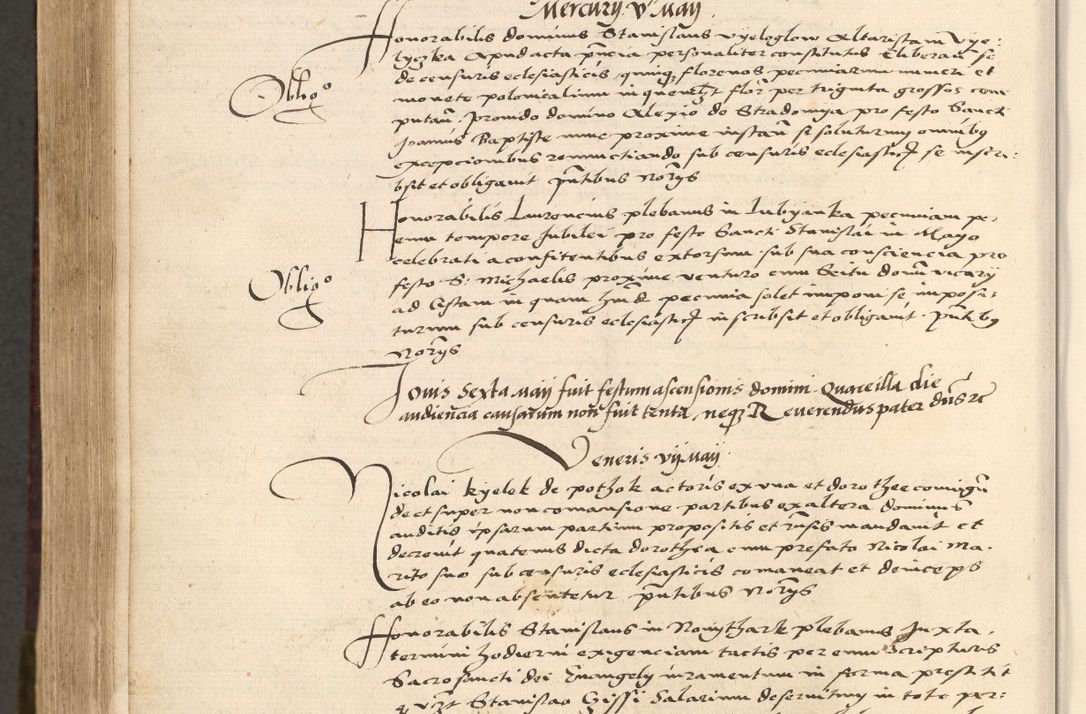 Mercurij v Maij
Honorabilis dominus Stanislaus vyeloglow Altarista in vye-
lyczka Apud acta pñcia personaliter constitutus Eliberañ se
de censuris eclesiasticis, quinqz florenos pecuniarum numeri et
Obligº
monete polonicalium in quemlzt floř per triginta grossos com-
putañ. Provido domino Alexio de Stradomya pro festo Sancti
Joannis Baptiste nunc proxime instañ se soluturum omnibz
excepcionibus renunctiando sub censuris eclesiasticȷ se inscri-
bsit et obligavit pñtibus Norijs
Honorabilis Laurencius plebanus in Lubyanka pecuniam per
eum tempore Jubilei pro festo Sancti Stanislai in Mayo
celebrati a confitentibus extorsam sub sua consciencia pro
Obligº
festo S. Michaelis proxime venturo cum Scitu domi vicarij
ad Cistam in quam hmõi pecunia solet imponi se imposi-
turum sub censuris eclesiasticȷ inscribsit et obligavit. pñtibz
Norijs
Jovis Sexta Maij fuit festum ascensionis domini. Quare illa die
audiencia causarum non fuit tenta, neqz Reverendus pater dñs etc
Veneris vij Maij
Nicolai kyelek de pothok actoris ex vna et dorothee coniugũ
de et super non comansione partibus ex altera dominus
auditis ipsarum partium propositis et rñsis mandavit et
decrevit quatenus dicta dorothea cum prefato Nicolai Ma-
rito suo sub censuris eclesiasticis comaneat et deinceps
ab eo non absentetur pñtibus Norijs
Honorabilis Stanislaus in Nowythark plebanus Juxta
termini hodierni exigenciam tactis per eum Scripturis
Sacrosancti dei Euangely iuramentum in forma prestitit
q vzt Stanislao Gissi Salarium deservitum in toto per-